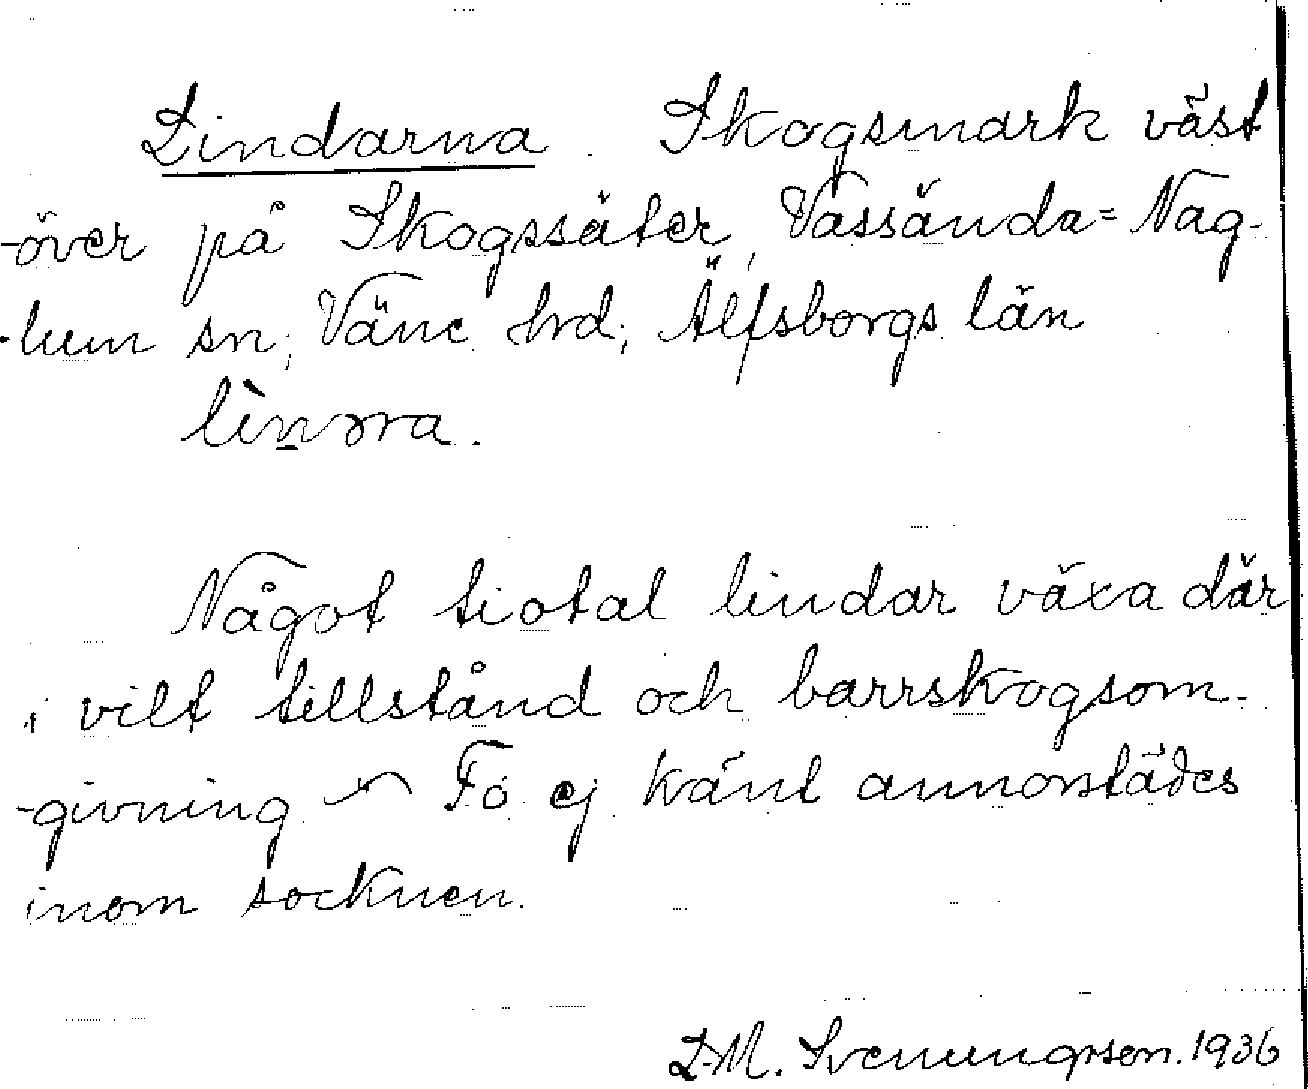 Lindarna. Skogsmark väst
-över på Skogssäter, Vassända=Nag-
-lum sn, Väne hrd, Älfsborgs län
lìn̲ɔra.
Något tiotal lindar växa där
i vilt tillstånd och barrskogsom-
-givning Fö ej känt annorstädes
inom socknen.
L.M. Svenungsson. 1936